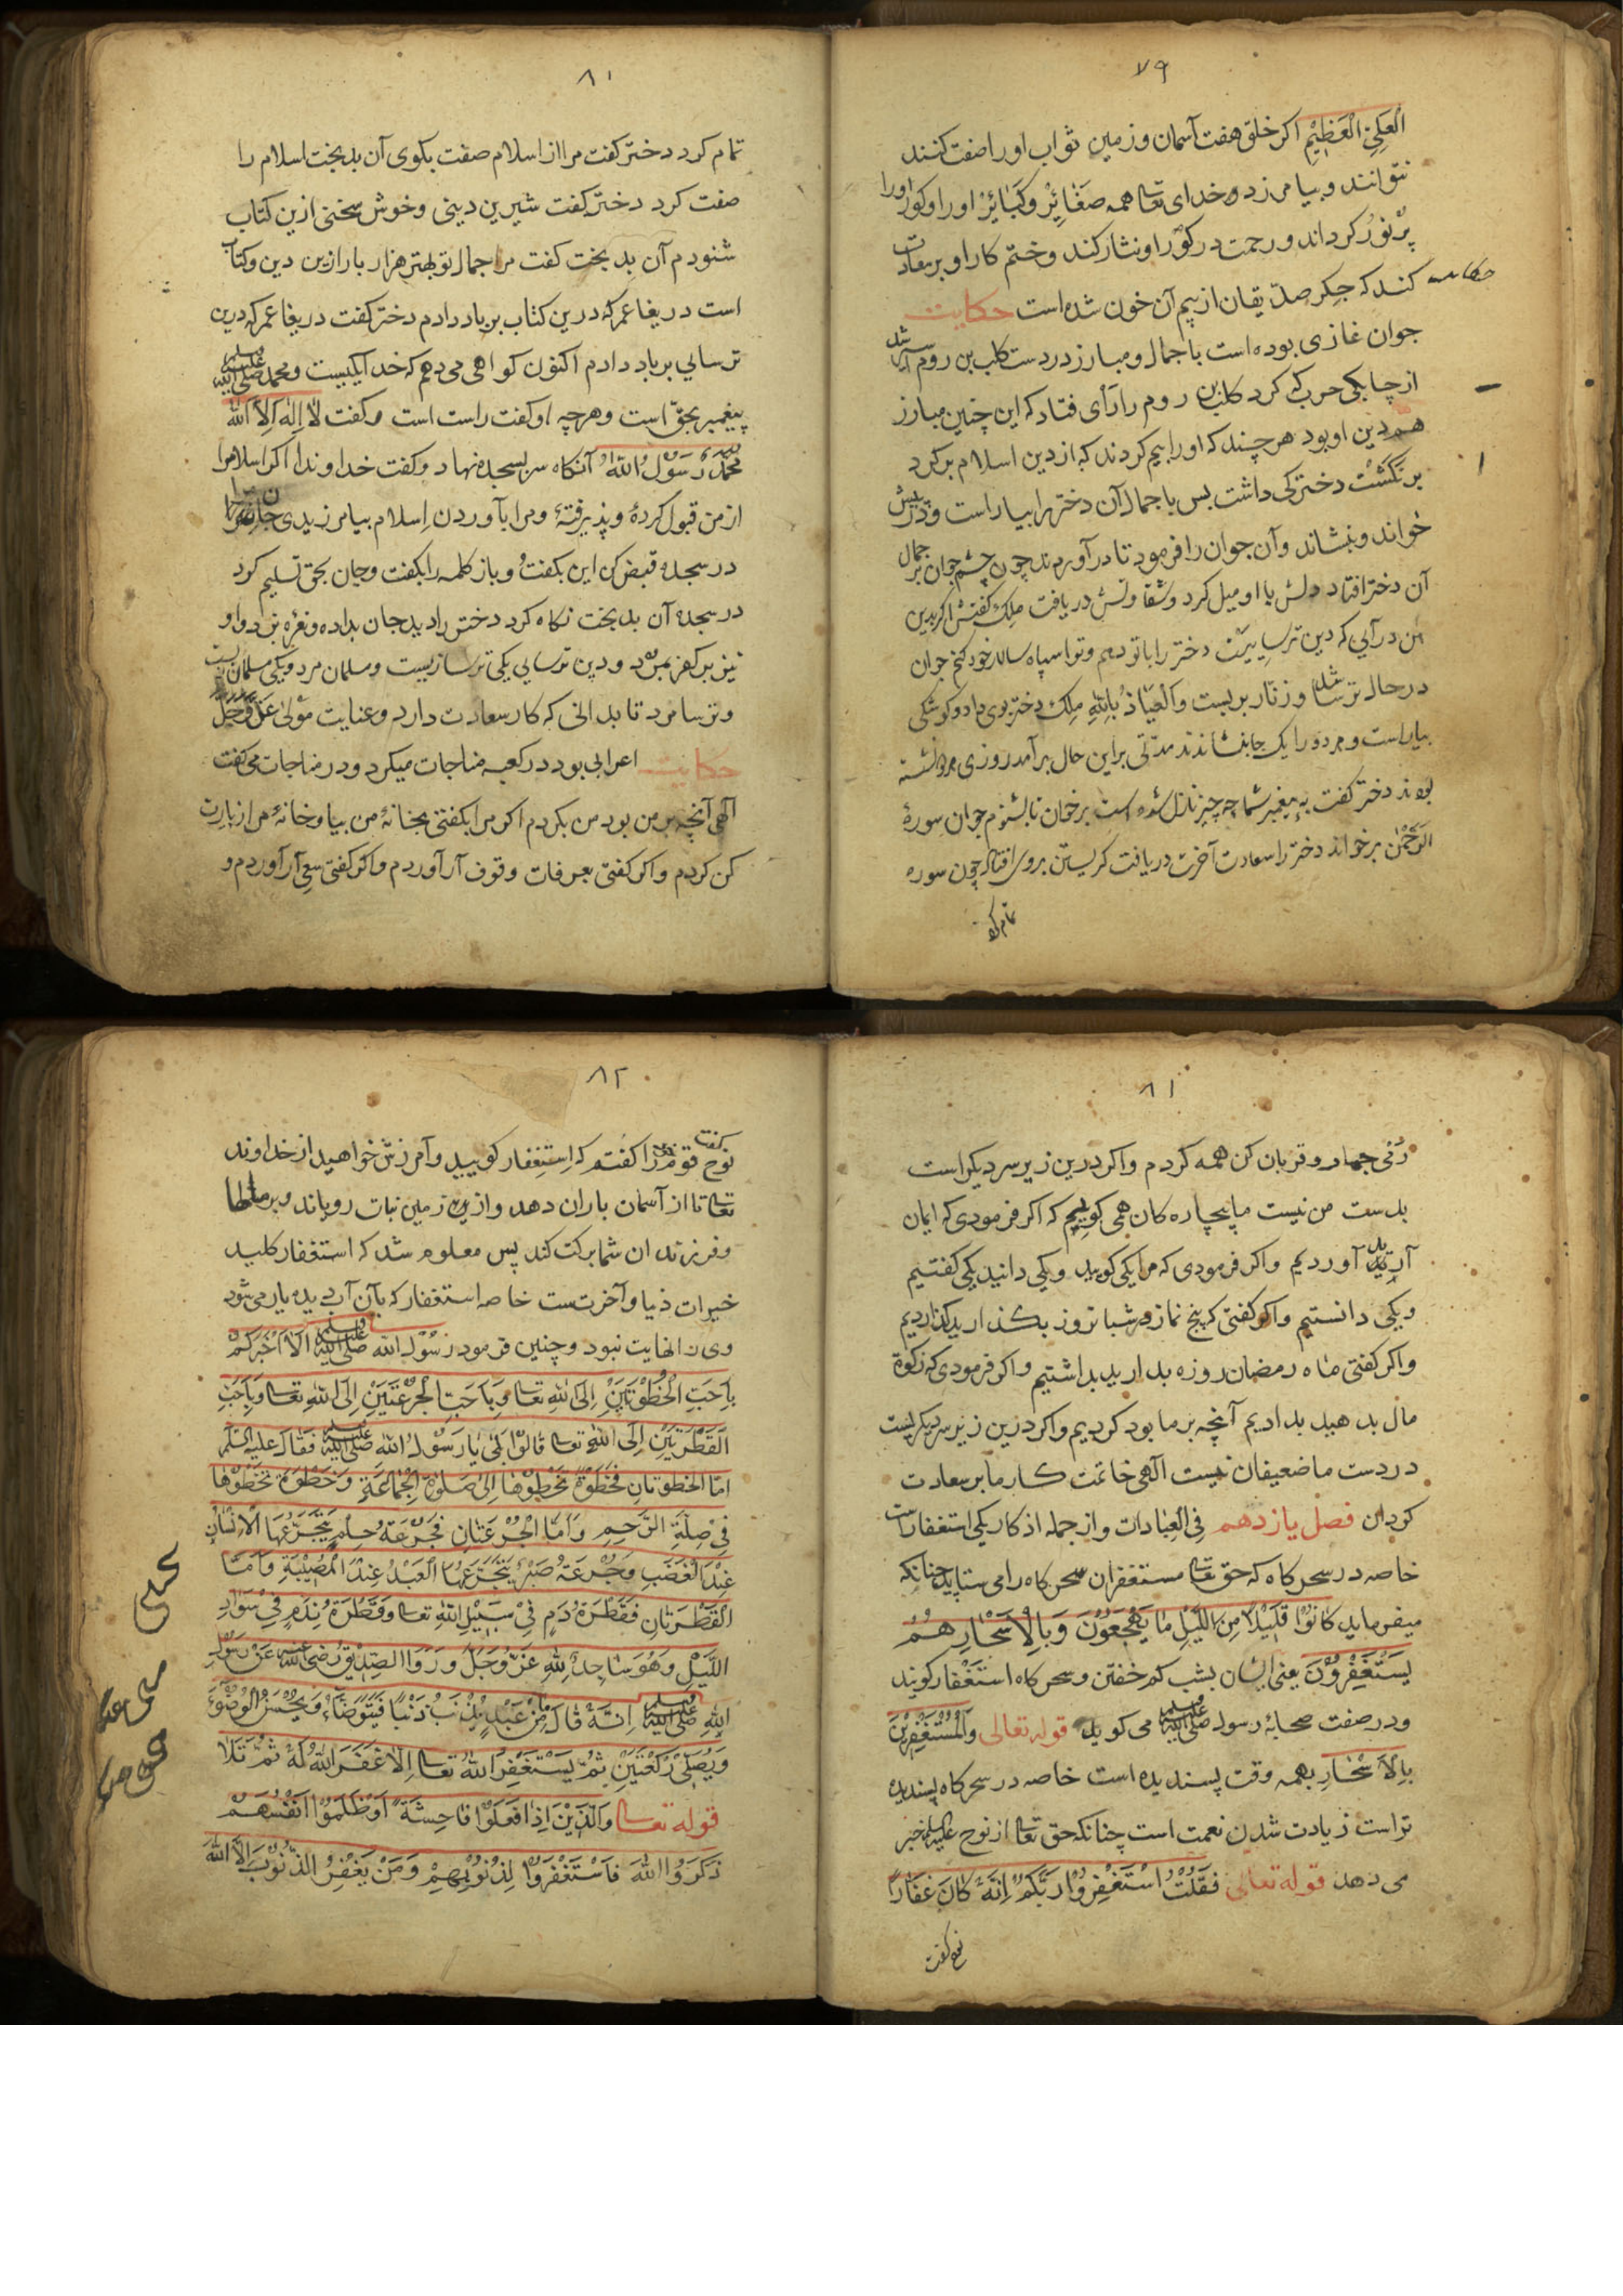 ۷۹
الْعَلِيِّ الْعَظِيْمِ اکر خلق هفت آسمان و زمین ثواب او را صفت کنند
نتوانند و بیامرزد خدای تعا همه صَغَائِرْ وکَبَائِرْ او را و کور او را
پُرْنُورْ کرداند و رحمت در کور او نثار کند و ختم کار او بر سعادت
کند که جِکر صدّیقان از بیم آن خون شده است حکایت
حکایت
جوان غازی بوده است با جمال و مبارز در دست کلب بن روم اسیر شد
از چابکی حرب که کرد کلب بن روم را رَأی فتاد که این چنین مبارز
هم دین او بود هر چند که او را بیم کردند که از دین اسلام برکرد
برنکَشْت دخترکی داشت بس با جمال آن دختر را بیاراست و در پیش
خواند و بنشاند و آن جوان را فرمود تا در آوردند چون چشم جوان بر جمال
آن دختر افتاد دلش با او میل کرد و شقاوتش دریافت ملِک کفتش اکر بدین
من در آیی که دین ترسایی‌ست دختر را با تو دهم و ترا سپاه سالار خود کنم جوان
در حال ترسا شد و زنّار بربست وَالْعِیَاذُ بِاللهِ ملِک دختر بوی داد و کوشکی
بیاراست و هر دو را یک جا بنشاندند مدّتی بر این حال برآمد روزی هر دو نشسته
بودند دختر کفت به پیغمبر شما چه چیز نازل شده است برخوان تا بشنوم جوان سورهٔ
الرَّحْمٰن برخواند دختر را سعادت آخرت دریافت کریستن بروی افتاد چون سوره
تمام کرد
۸۰
تمام کرد دختر کفت مرا از اسلام صفت بکوی آن بدبخت اسلام را
صفت کرد دختر کفت شیرین دینی و خوش سخنی ازین کتاب
شنودم آن بدبخت کفت مرا جمال تو بهتر هزار بار ازین دین و کتاب
است دریغا عمر که درین کتاب برباد دادم دختر کفت دریغا عمر که درین
ترسایی برباد دادم اکنون کواهی می دهم که خدا یکیست و محمد صلی الله علیه وسلم
پیغمبر بحقّ است و هر چه او کفت راست است و کفت لَا اِلٰهَ اِلَّا اللهُ
مُحَمَّدٌ رَسُوْلُ اللهِ آنکاه سر بسجده نهاد و کفت خداوندا اکر اسلام مرا
از من قبول کردهٔ و پذیرفتهٔ و مرا بآوردن اِسلام بیامرزیدی جان مرا
در سجده قبض کن این بکفتْ و باز کلمه را بکفت و جان بحق تسلیم کرد
در سجده آن بدبخت نکاه کرد دخترش را دید جان بداده و نعره بزد و او
نیز بر کفر بمرد و دین ترسایی یکی ترسا زیست و مسلمان مرد و یکی مسلمان زیست
و ترسا مرد تا بدانی که کار سعادت دارد و عنایت مَوْلیٰ عَزَّ وَجَلَّ
حکایت اعرابی بود در کعبه مناجات میکرد و در مناجات می کفت
آلهی آنچه بر من بود من بکردم اکر مرا بکفتی بخانهٔ من بیا و خانهٔ مرا زیارت
کن کردم و اکر کفتی بعرفات وقوف آر آوردم و اکر کفتی سعی آر آوردم و
۸۱
رَمْی جمار و قربان کن همه کردم و اکر درین زیر سر دیکر است
بدست من نیست ما بیچاره کان همی کوییم که اکر فرمودی که ایمان
آرید آوردیم و اکر فرمودی که مرا یکی کویید و یکی دانید یکی کفتیم
و یکی دانستیم و اکر کفتی که پنج نماز در شبانروز بکذارید کذاردیم
و اکر کفتی ماه رمضان روزه بدارید بداشتیم و اکر فرمودی که زکوة
مال بدهید بدادیم آنچه بر ما بود کردیم و اکر درین زیر سر دیکریست
در دست ما ضعیفان نیست آلهی خاتمت کار ما بر سعادت
کردان فصل یازدهم فِی الْعِبَادات و از جمله اذکار یکی استغفار است
خاصه در سحرکاه که حق تعا مستغفران سحرکاه را می ستاید چنانکه
میفرماید کَانُوْا قَلِیْلًا مِنَ اللَّیْلِ مَا یَهْجَعُوْنَ وَبِالْاَسْحَارِ هُمْ
یَسْتَغْفِرُوْنَ یعنی ایشان بشب کم خفتن و سحرکاه استغفار کویند
و در صفت صحابهٔ رسول صلی الله علیه وسلم می کوید قوله تعالی وَالْمُسْتَغْفِرِیْنَ
بِالْاَسْحَارِ بهمه وقت پسندیده است خاصه در سحرکاه پسندیده
تراست زیادت شدن نعمت است چنانکه حق تعا از نوح علیه السلم خبر
می دهد قوله تعالی فَقُلْتُ اسْتَغْفِرُوْا رَبَّکُمْ اِنَّهٗ کَانَ غَفَّارًا
نوح کفت
۸۲
نوح کفت قوم را کفتم که اِستِغفار کویید و آمرزش خواهید از خداوند
تعا تا از آسمان باران دهد و از زمین نبات رویاند و بر مالها
و فرزندان شما برکت کند پس معلوم شد که استغفار کلید
خیرات دنیا و آخرتست خاصه استغفار که بآن آب دیده یار می شود
وی را نهایت نبود و چنین فرمود رَسُوْل الله صلی الله علیه وسلم اَلَا اُخْبِرُکُمْ
بِاَحَبِّ الْخُطْوَتَیْنِ اِلَی اللهِ تعا وَبِاَحَبِّ الْجُرْعَتَیْنِ اِلَی اللهِ تعا وَبِاَحَبِّ
الْقَطْرَتَیْنِ اِلَی اللهِ تعا قَالُوْا بَلٰی یَا رَسُوْلَ اللهِ صلی الله علیه وسلم فَقَالَ علیه السلم
اَمَّا الْخُطْوَتَانِ فَخُطْوَةٌ تَخْطُوْهَا اِلٰی صَلٰوةِ الْجَمَاعَةِ وَخُطْوَةٌ تَخْطُوْهَا
فِیْ صِلَةِ الرَّحِمِ وَاَمَّا الْجُرْعَتَانِ فَجُرْعَةُ حِلْمٍ یَتَجَرَّعُهَا الْاِنْسَانُ
عِنْدَ الْغَضَبِ وَجُرْعَةُ صَبْرٍ یَتَجَرَّعُهَا الْعَبْدُ عِنْدَ الْمُصِیْبَةِ وَاَمَّا
الْقَطْرَتَانِ فَقَطْرَةُ دَمٍ فِیْ سَبِیْلِ اللهِ تعا وَقَطْرَةُ نَدَمٍ فِیْ سَوَادِ
اللَّیْلِ وَهُوَ سَاجِدٌ لِلّٰهِ عَزَّ وَجَلَّ وَرَوَا الصِّدِّیْقُ رضی الله عنه عَنْ رَسُوْلِ
اللهِ صلی الله علیه وسلم اِنَّهٗ قَالَ مَا مِنْ عَبْدٍ یُذْنِبُ ذَنْبًا فَیَتَوَضَّاُ وَیُحْسِنُ الْوُضُوْءَ
وَیُصَلِّیْ رَکْعَتَیْنِ ثُمَّ یَسْتَغْفِرُ اللهَ تعا اِلَّا غَفَرَ اللهُ لَهٗ ثُمَّ تَلَا
قوله تعا وَالَّذِیْنَ اِذَا فَعَلُوْا فَاحِشَةً اَوْ ظَلَمُوْا اَنْفُسَهُمْ
ذَکَرُوا اللهَ فَاسْتَغْفَرُوْا لِذُنُوْبِهِمْ وَمَنْ یَغْفِرُ الذُّنُوْبَ اِلَّا اللهُ